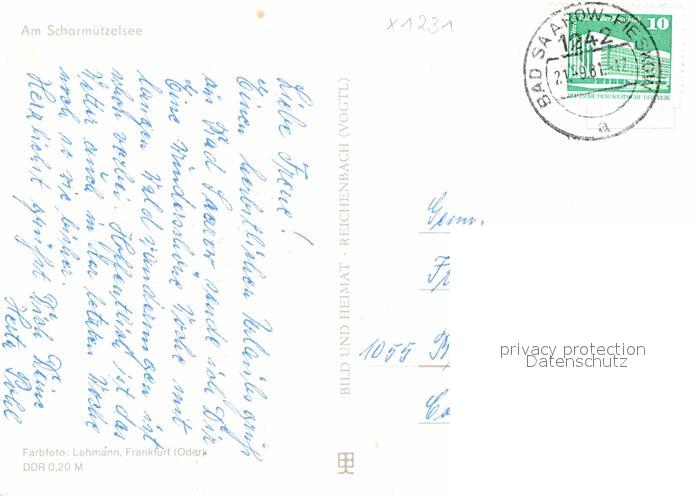 Am Scharmützelsee
X1231
Liebe Irene!
Einen herbstlichen Urlaubsgruß
aus Bad Saarow sende ich Dir
Eine wunderschöne Woche mit
langen Waldwanderungen ist
schon vorbei. Hoffentlich ist das
Wetter auch in der letzten Woche
noch so wie bisher.
Herzlichst grüßt Dich Deine
Herta Pohl
Farbfoto: Lehmann, Frankfurt (Oder)
DDR 0,20 M
BILD UND HEIMAT · REICHENBACH (VOGTL)
10
DEUTSCHE DEMOKRATISCHE REPUBLIK
BAD SAAROW-PIESKOW
1242
21.-9.81
a
Genn.
Fr
1055 B
Co
privacy protection
Datenschutz